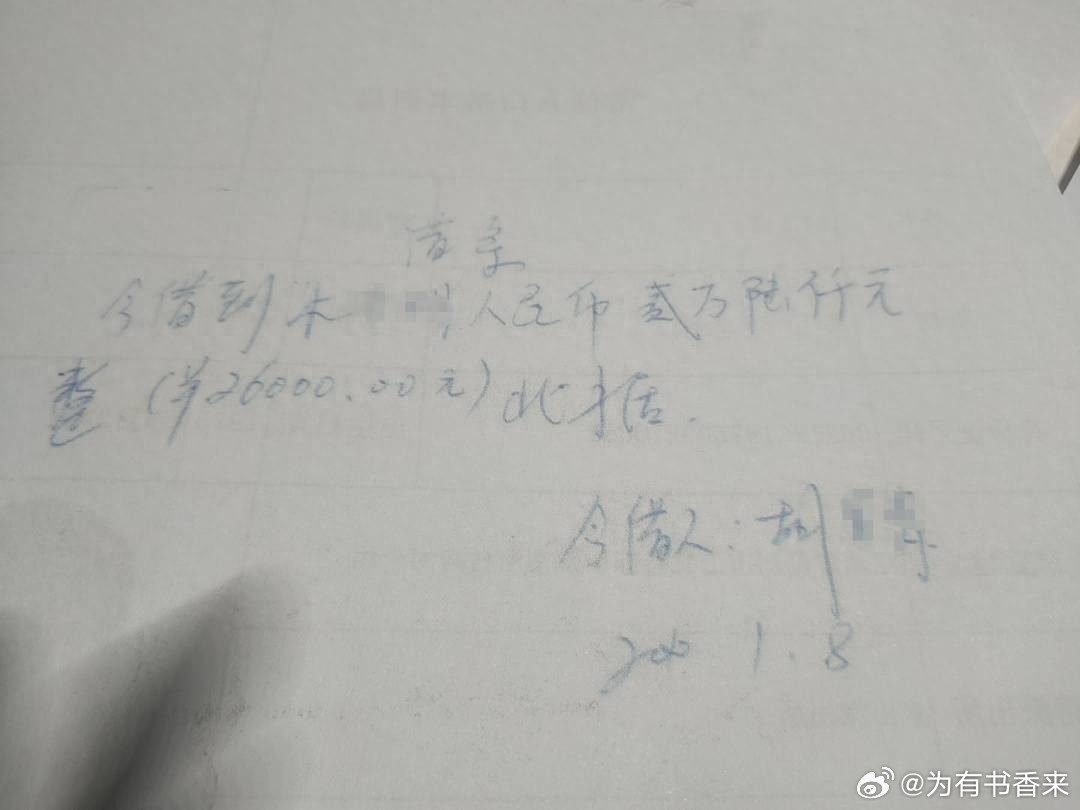 借条
今借到朱 人民币贰万陆仟元
整.(¥26000.00元)此才据.
今借人:胡
1.8
@为有书香来